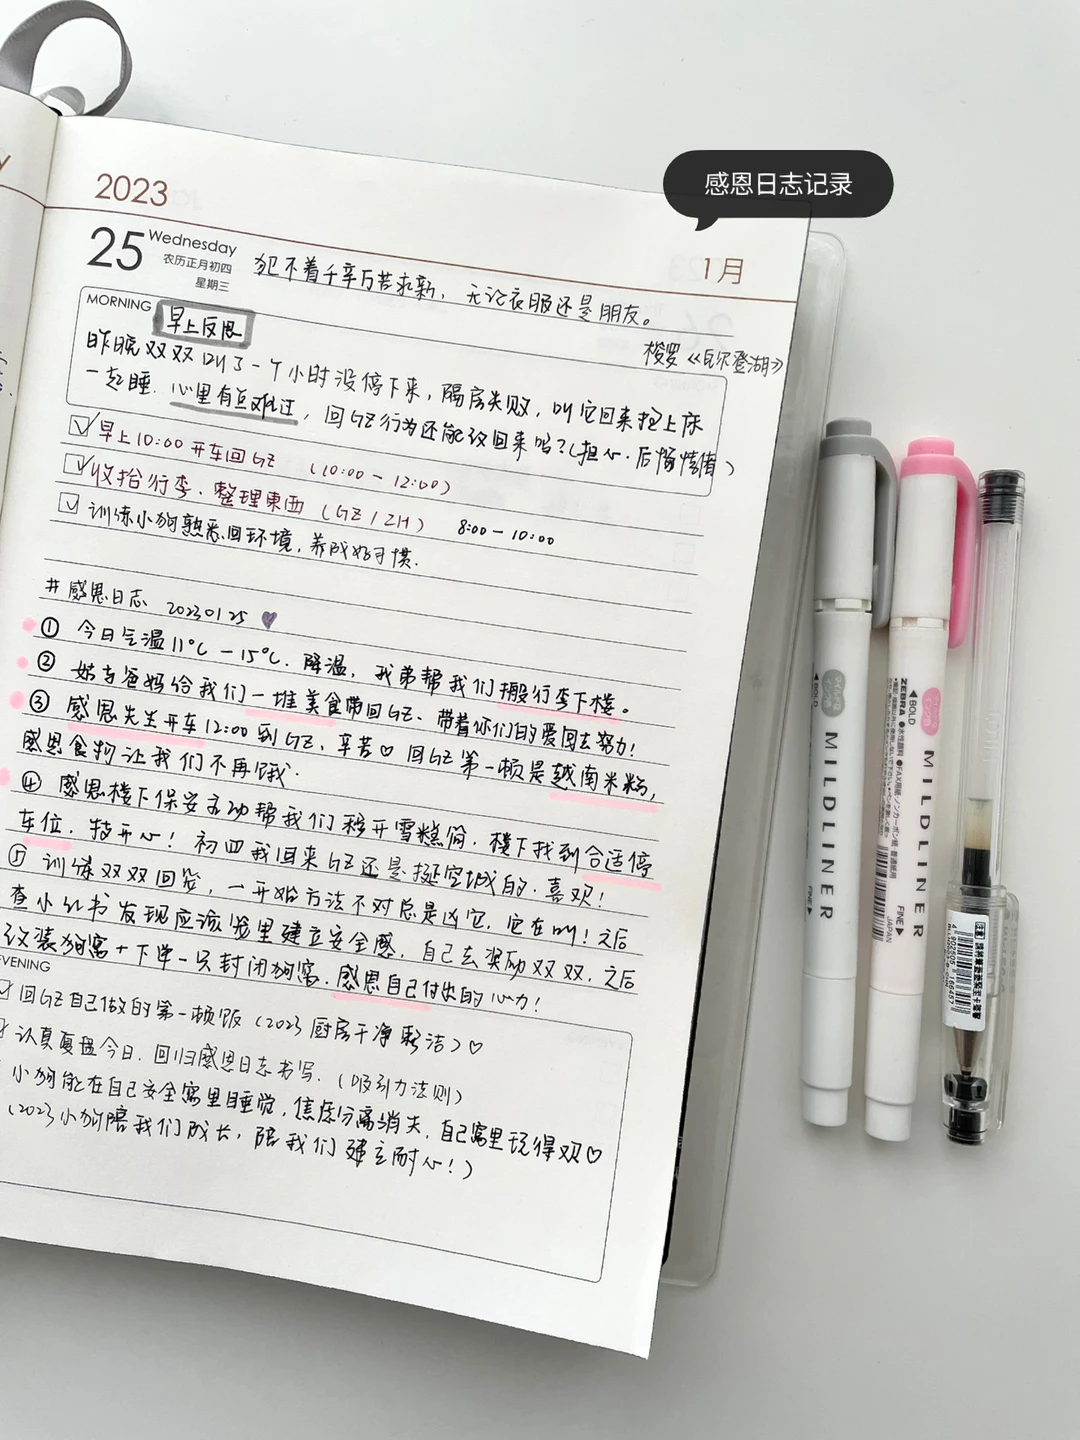 感恩日志记录
2023
25
Wednesday
农历正月初四
星期三
1月
犯不着千辛万苦求新，无论衣服还是朋友。
梭罗《瓦尔登湖》
MORNING
早上反思
昨晚双双叫了一个小时没停下来，隔房失败，叫它回来抱上床
一起睡.心里有点难过，回GZ行为还能改回来吗？(担心.后悔情绪)
早上10:00开车回GZ (10:00-12:00)
收拾行李、整理东西 (GZ/ZH) 8:00-10:00
训练小狗熟悉回环境，养成好习惯.
#感恩日志 20230125
① 今日气温11℃-15℃.降温，我弟帮我们搬行李下楼。
② 姑爸妈给我们一堆美食带回GZ、带着你们的爱回去努力！
③ 感恩先生开车12:00到GZ、辛苦♡ 回GZ第一顿是越南米粉，
感恩食物让我们不再饿.
④ 感恩楼下保安主动帮我们移开雪糕筒，楼下找到合适停
车位.特开心！初四我回来GZ还是挺空城的.喜欢！
⑤ 训练双双回笼，一开始方法不对总是凶它，它在叫！之后
查小红书发现应该笼里建立安全感，自己去奖励双双，之后
改装狗窝+下单一只封闭狗窝.感恩自己付出的心力！
EVENING
回GZ自己做的第一顿饭(2023厨房干净整洁)♡
认真复盘今日.回归感恩日志书写.(吸引力法则)
小狗能在自己安全窝里睡觉，焦虑分离消失，自己窝里玩得欢♡
(2023小狗陪我们成长，陪我们建立耐心！)
MILDLINER
BOLD
FINE
MILDLINER
BOLD
FINE
ZEBRA
JAPAN